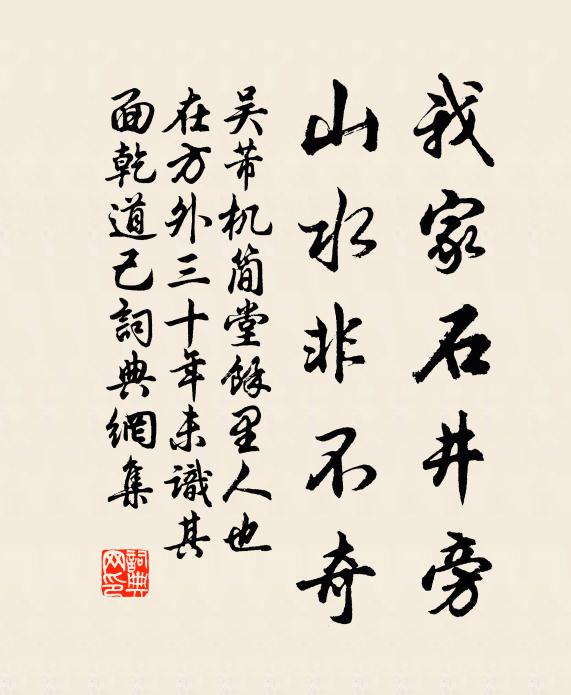 我家石井旁
山水非不奇
吴芾机简堂馀里人也
在方外三十年未識其
面乾道己詞典網集
詞典网印